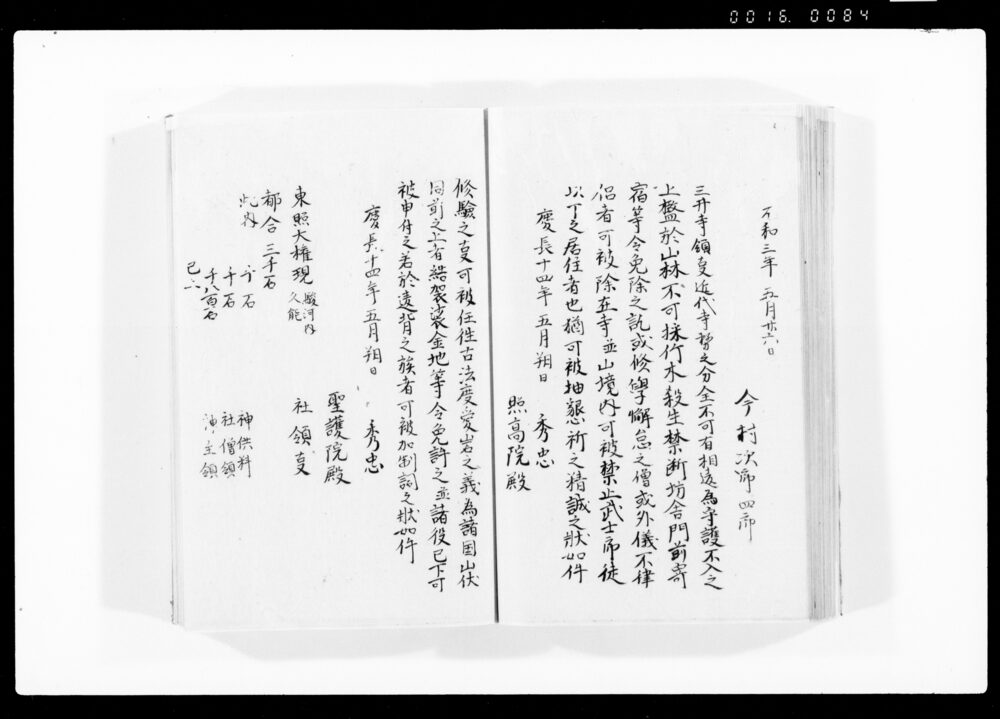 0016. 0084
元和三年 五月廿六日
今村次郎四郎
三井寺領支近代寺務之分全不可有相違為守護不入之
上盤於山林不可採竹木殺生禁断坊舎門前寄
宿等令免除之訖或修学懈怠之僧或外儀不律
侶者可被除在寺並山境内可被禁止武士郎徒
以下之居住者也猶可被抽懇祈之精誠之状如件
慶長十四年五月朔日 秀忠
照高院殿
修験之支可被任往古法度愛岩之義為諸国山伏
同前之上者結袈裟金地等令免許之並諸役已下可
被申付之若於違背之族者可被加制詞之状如件
慶長十四年五月朔日 秀忠
聖護院殿
東照大権現 駿河内 久能 社領支
都合 三千石
此内
千石 神供料
千石 社僧領
千八百石 神主領
已上